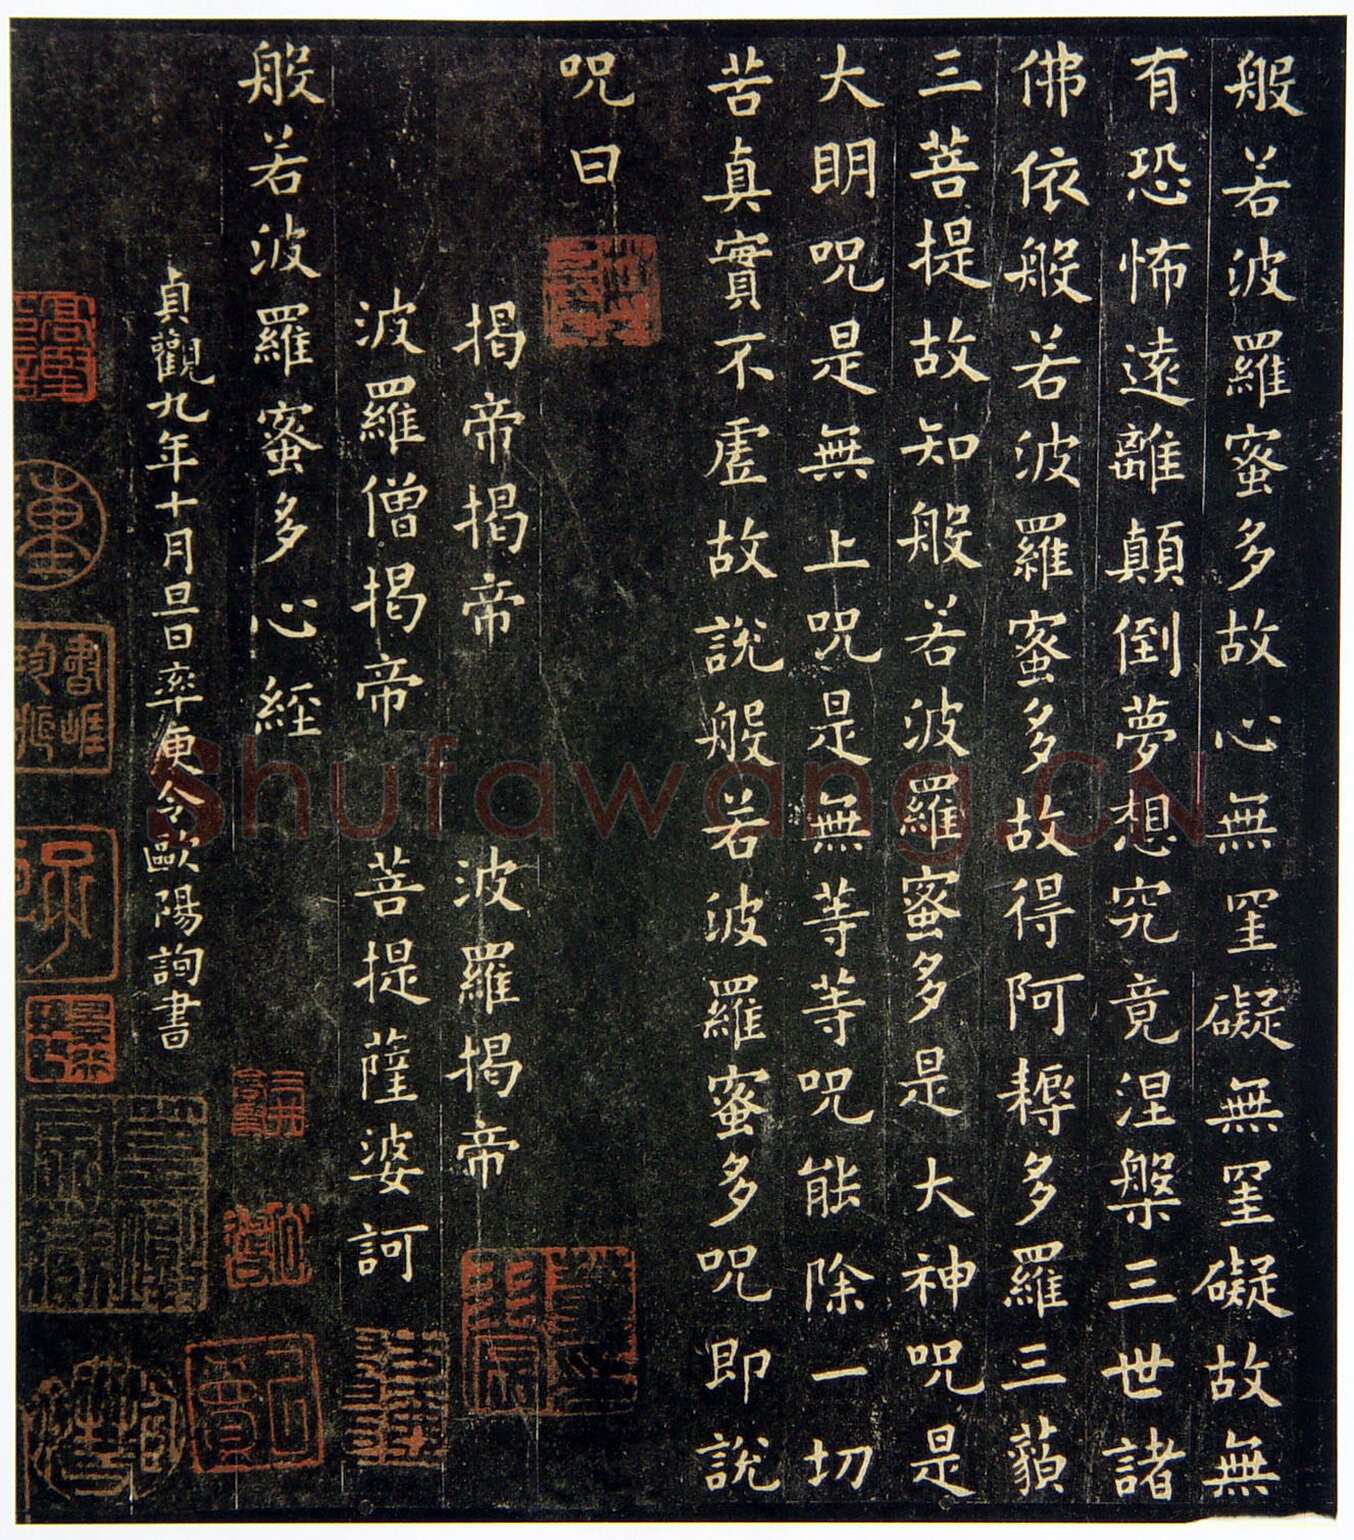 般若波羅蜜多故心無罣礙無罣礙故無
有恐怖遠離顛倒夢想究竟涅槃三世諸
佛依般若波羅蜜多故得阿耨多羅三藐
三菩提故知般若波羅蜜多是大神呪是
大明呪是無上呪是無等等呪能除一切
苦真實不虛故說般若波羅蜜多呪即說
呪曰
揭帝揭帝 波羅揭帝
波羅僧揭帝 菩提薩婆訶
般若波羅蜜多心經
貞觀九年十月旦日率更令歐陽詢書
Shufawang.CN